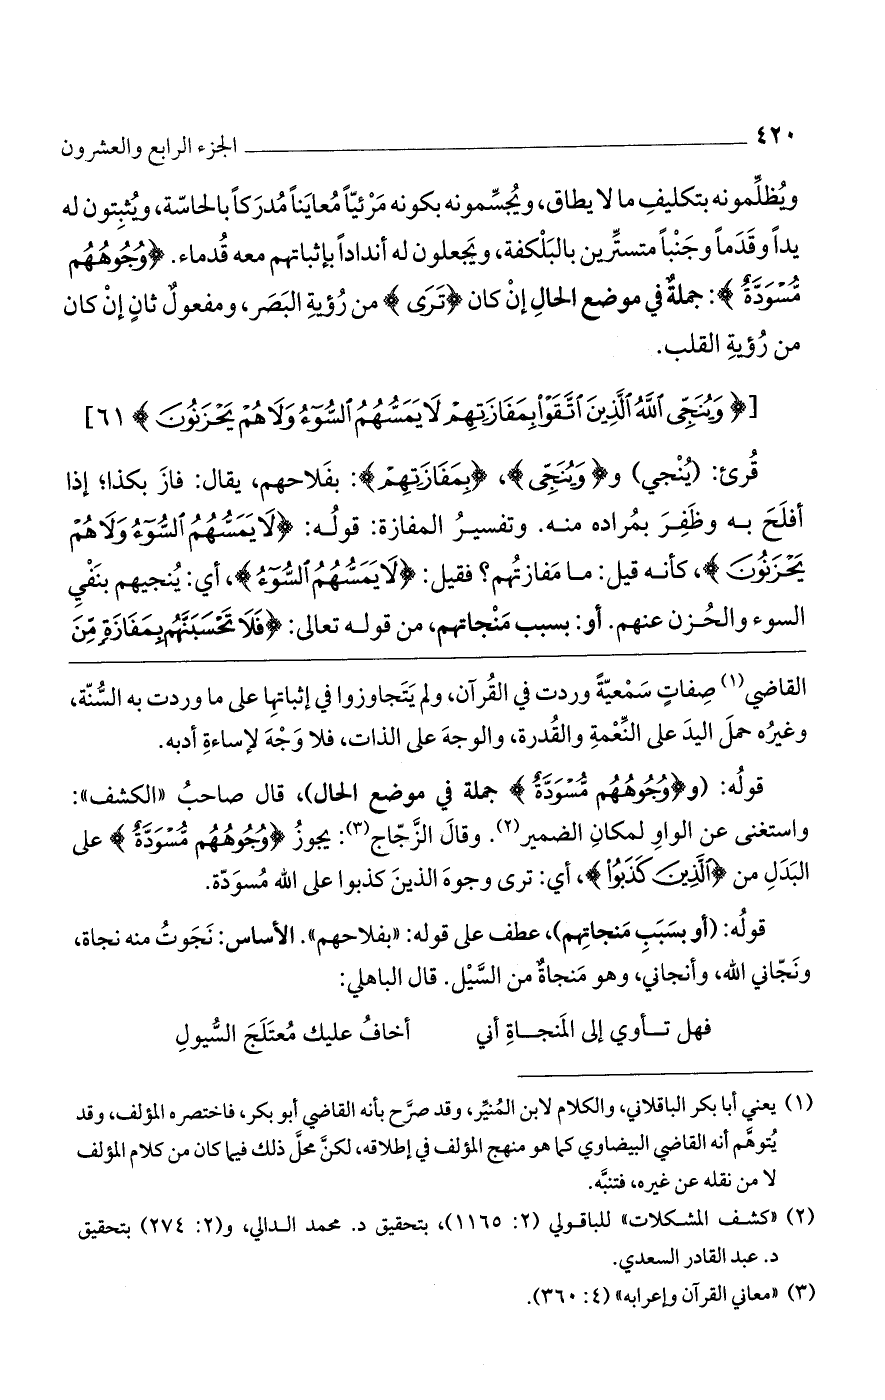 ٤٢٠ الجزء الرابع والعشرون
ويُظلِّمونه بتكليفِ ما لا يطاق، ويُجسِّمونه بكونه مَرْئيّاً مُعايَناً مُدرَكاً بالحاسّة، ويُثبِتون له
يداً وقَدَماً وجَنْباً متستِّرين بالبَلْكفة، ويَجعلون له أنداداً بإثباتهم معه قُدماء. ﴿وُجُوهُهُم
مُّسْوَدَّةٌ﴾: جملةٌ في موضع الحالِ إنْ كان ﴿تَرَى﴾ من رُؤيةِ البَصَر، ومفعولٌ ثانٍ إنْ كان
من رُؤيةِ القلب.
[﴿وَيُنَجِّى ٱللَّهُ ٱلَّذِينَ ٱتَّقَوْا۟ بِمَفَازَتِهِمْ لَا يَمَسُّهُمُ ٱلسُّوٓءُ وَلَا هُمْ يَحْزَنُونَ﴾ ٦١]
قُرئ: (يُنْجي) و﴿وَيُنَجِّى﴾، ﴿بِمَفَازَتِهِمْ﴾: بفَلاحهم، يقال: فازَ بكذا؛ إذا
أفلَحَ به وظَفِرَ بمُراده منه. وتفسيرُ المفازة: قولُه: ﴿لَا يَمَسُّهُمُ ٱلسُّوٓءُ وَلَا هُمْ
يَحْزَنُونَ﴾، كأنه قيل: ما مَفازتُهم؟ فقيل: ﴿لَا يَمَسُّهُمُ ٱلسُّوٓءُ﴾، أي: يُنجيهم بنَفْيِ
السوء والحُزن عنهم. أو: بسببِ مَنْجاتهم، من قوله تعالى: ﴿فَلَا تَحْسَبَنَّهُم بِمَفَازَةٍ مِّنَ
القاضي(١) صِفاتٍ سَمْعيّةً وردت في القُرآن، ولم يَتَجاوزوا في إثباتِها على ما وردت به السُّنّة،
وغيرُه حملَ اليدَ على النِّعْمةِ والقُدرة، والوجهَ على الذات، فلا وَجْهَ لإساءةِ أدبه.
قولُه: (و﴿وُجُوهُهُم مُّسْوَدَّةٌ﴾ جملة في موضع الحال)، قال صاحبُ «الكشف»:
واستغنى عن الواوِ لمكانِ الضمير(٢). وقالَ الزَّجّاج(٣): يجوزُ ﴿وُجُوهُهُم مُّسْوَدَّةٌ﴾ على
البَدَلِ من ﴿ٱلَّذِينَ كَذَبُوا۟﴾، أي: ترى وجوهَ الذينَ كذبوا على الله مُسوَدّة.
قولُه: (أو بسَبَبِ مَنجاتِهم)، عطف على قوله: «بفلاحهم». الأساس: نَجَوتُ منه نجاة،
ونَجّاني الله، وأنجاني، وهو مَنجاةٌ من السَّيْل. قال الباهلي:
فهل تأوي إلى المَنجاةِ أني أخافُ عليك مُعتَلَجَ السُّيولِ
(١) يعني أبا بكر الباقلاني، والكلام لابن المُنيِّر، وقد صرَّح بأنه القاضي أبو بكر، فاختصره المؤلف، وقد
يُتوهَّم أنه القاضي البيضاوي كما هو منهج المؤلف في إطلاقه، لكنَّ محلَّ ذلك فيما كان من كلام المؤلف
لا من نقله عن غيره، فتنبَّه.
(٢) «كشف المشكلات» للباقولي (٢: ١١٦٥)، بتحقيق د. محمد الدالي، و(٢: ٢٧٤) بتحقيق
د. عبد القادر السعدي.
(٣) «معاني القرآن وإعرابه» (٤: ٣٦٠).